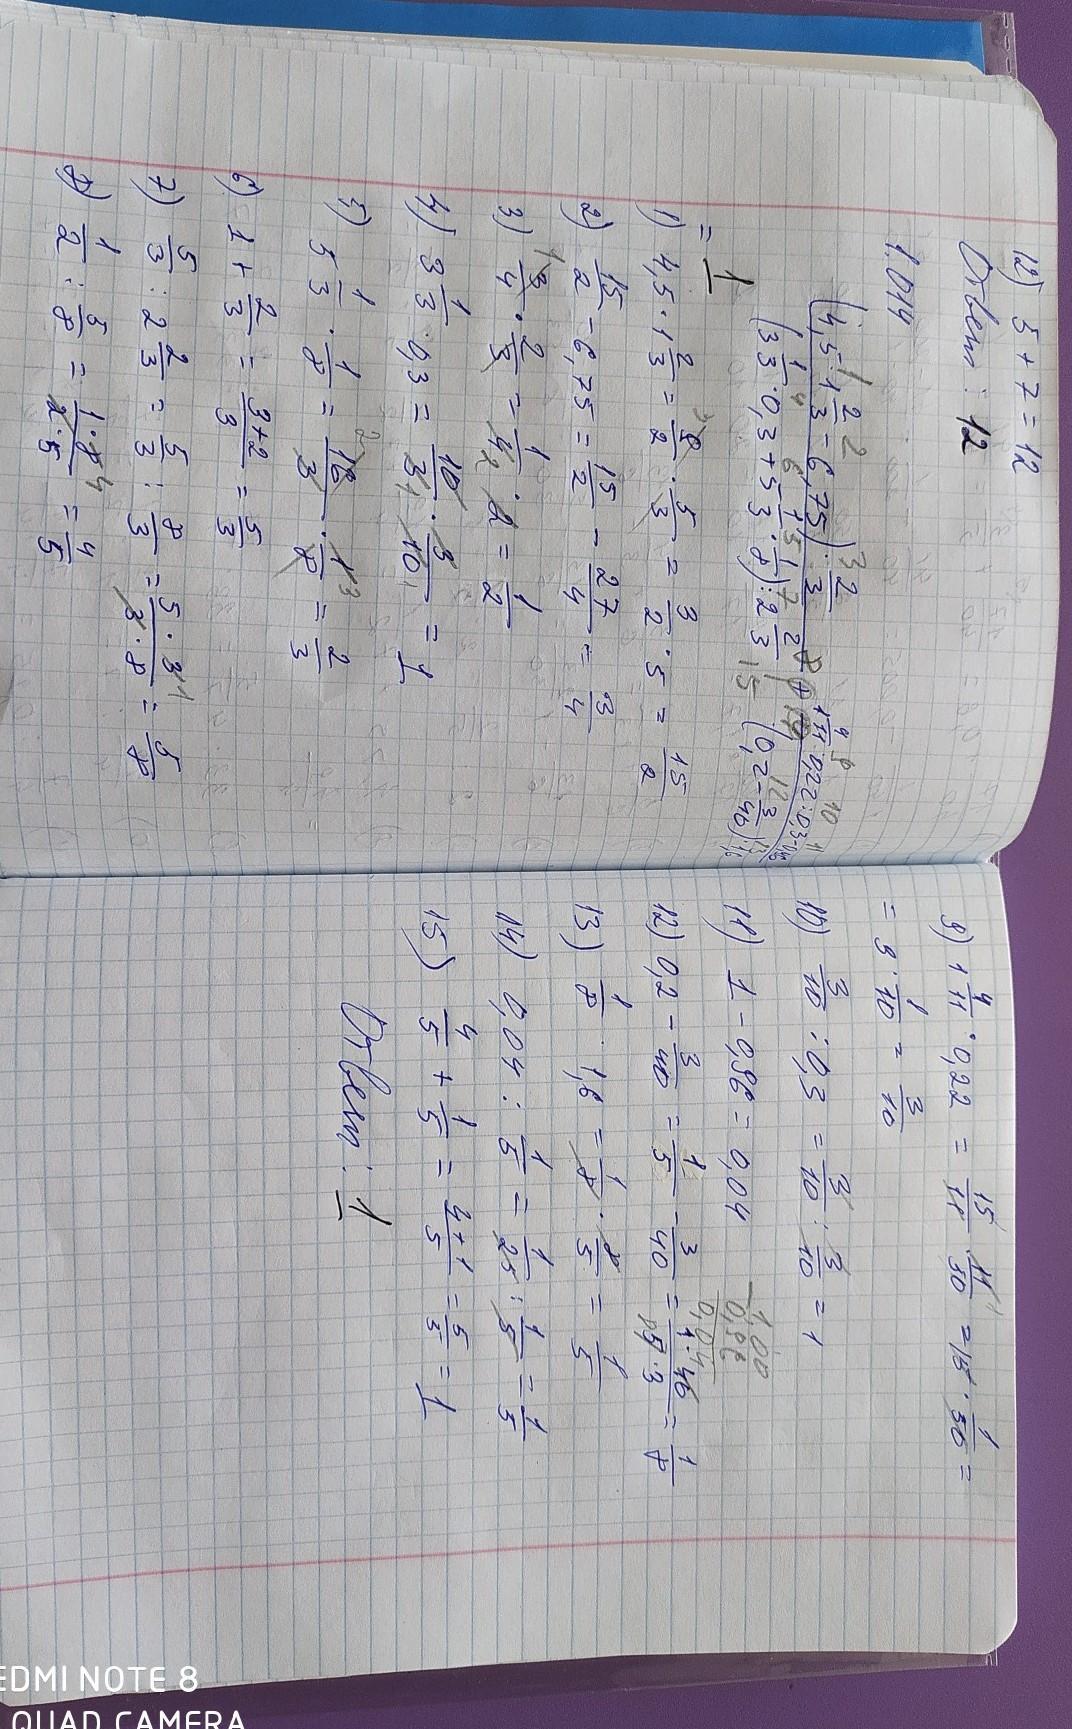 12) 5 + 7 = 12
Ответ: 12
1.014
(4,5 · 1 2/3 - 6,75) · 2/3
(3 1/3 · 0,3 + 5 1/3 · 1/8) : 2 2/3
+
1 4/11 · 0,22 : 0,3 - 0,96
(0,2 - 3/40) · 1,6
= 1
1) 4,5 · 1 2/3 = 9/2 · 5/3 = 3/2 · 5 = 15/2
2) 15/2 - 6,75 = 15/2 - 27/4 = 3/4
3) 3/4 · 2/3 = 1/4 · 2 = 1/2
4) 3 1/3 · 0,3 = 10/3 · 3/10 = 1
5) 5 1/3 · 1/8 = 16/3 · 1/8 = 2/3
6) 1 + 2/3 = 3+2/3 = 5/3
7) 5/3 : 2 2/3 = 5/3 : 8/3 = 5·3/3·8 = 5/8
8) 1/2 : 5/8 = 1·8/2·5 = 4/5
9) 1 4/11 · 0,22 = 15/11 · 11/50 = 15 · 1/50 =
= 3 · 1/10 = 3/10
10) 3/10 : 0,3 = 3/10 : 3/10 = 1
11) 1 - 0,96 = 0,04
1,00
0,96
0,04
12) 0,2 - 3/40 = 1/5 - 3/40 = 1·40/5·3 = 1/8
13) 1/8 · 1,6 = 1/8 · 8/5 = 1/5
14) 0,04 : 1/5 = 1/25 : 1/5 = 1/5
15) 4/5 + 1/5 = 4+1/5 = 5/5 = 1
Ответ: 1
REDMI NOTE 8
QUAD CAMERA